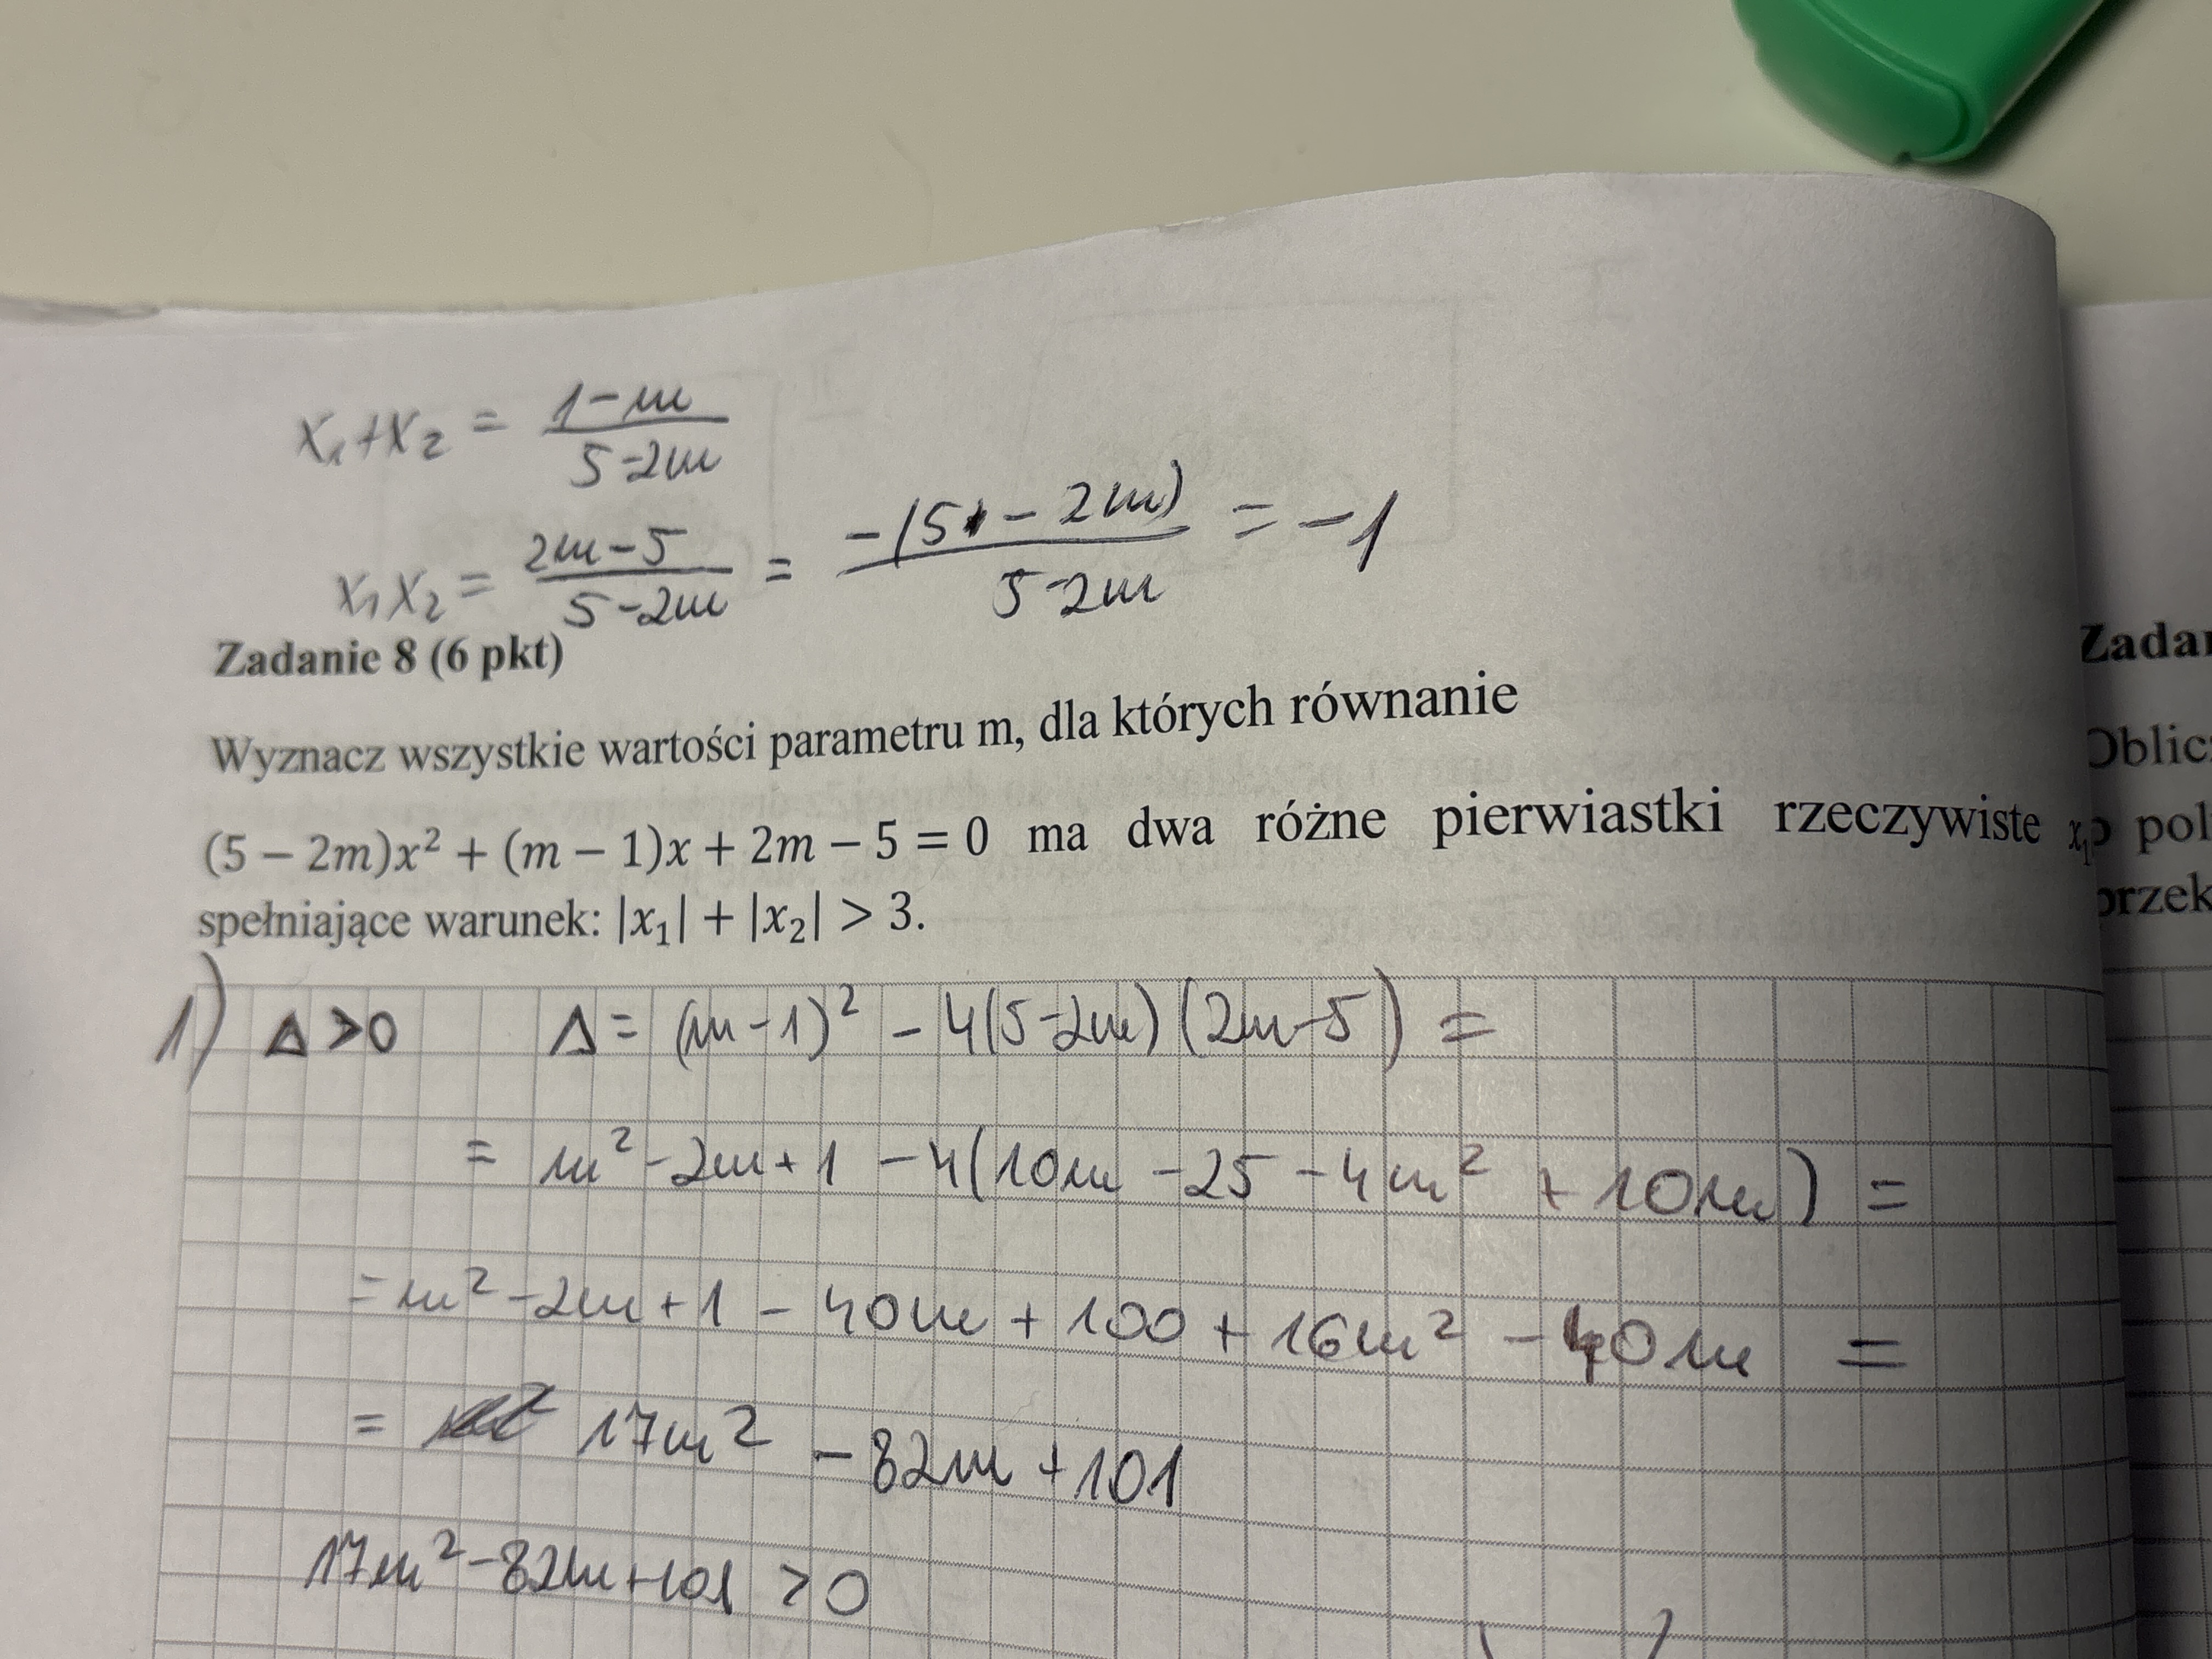 x₁+x₂ = \frac{1-m}{5-2m}
x₁x₂ = \frac{2m-5}{5-2m} = \frac{-(5-2m)}{5-2m} = -1
Zadanie 8 (6 pkt)
Wyznacz wszystkie wartości parametru m, dla których równanie
(5 − 2m)x² + (m − 1)x + 2m − 5 = 0 ma dwa różne pierwiastki rzeczywiste x₁
spełniające warunek: |x₁| + |x₂| > 3.
1) Δ>0 Δ= (m-1)² - 4(5-2m)(2m-5) =
= m²-2m+1 -4(10m -25 -4m² + 10m) =
= m²-2m+1 - 40m + 100 + 16m² - 40m =
= 17m² - 82m + 101
17m²-82m+101 > 0
Zadan
Oblicz
pol
przek